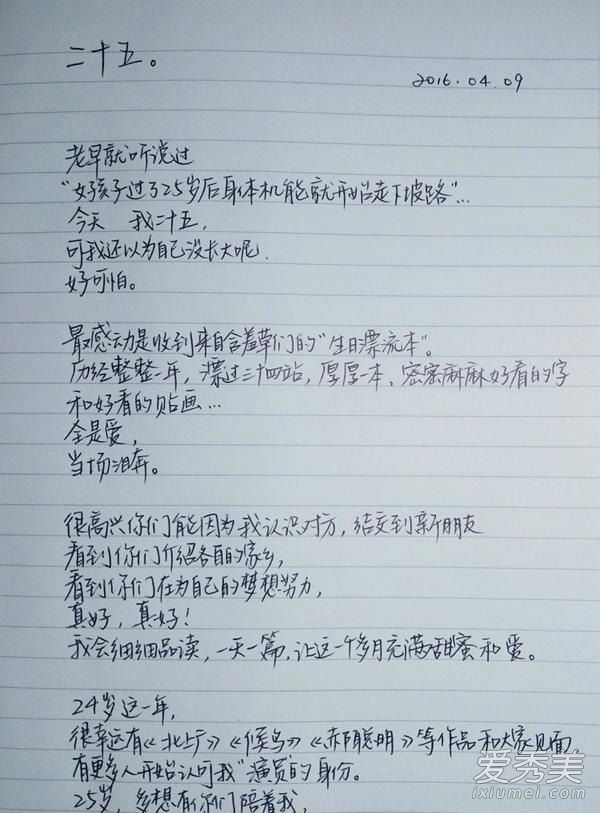 二十五。
2016.04.09
老早就听说过
“女孩子过了25岁后身体机能就开始走下坡路”…
今天 我二十五,
可我还以为自己没长大呢.
好可怕。
最感动是收到来自含羞草们的“生日漂流本”。
历经整整一年，漂过二十四站，厚厚一本、密密麻麻好看的字
和好看的贴画…
全是爱,
当场泪奔。
很高兴你们能因为我认识对方，结交到新朋友
看到你们介绍各自的家乡,
看到你们在为自己的梦想努力,
真好，真好!
我会细细品读，一天一篇,让这一个多月充满甜蜜和爱。
24岁这一年,
很幸运有《北上广》《候鸟》《亦聪明》等作品和大家见面,
有更多人开始认可我“演员”的身份。
25岁，多想有你们陪着我,
爱秀美
ixiumei.com